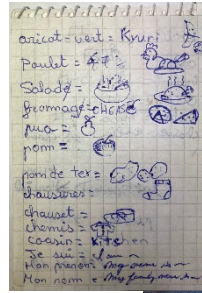 aricot-vert = Kruri
Poulet =
Salade =
fromage = CHEESE
pua =
pom =
pom de ter =
chausures =
chauset =
chemis =
cousin = Kitchen
Je suis = I am
Mon prenom = My name is
Mon nom = My family name is